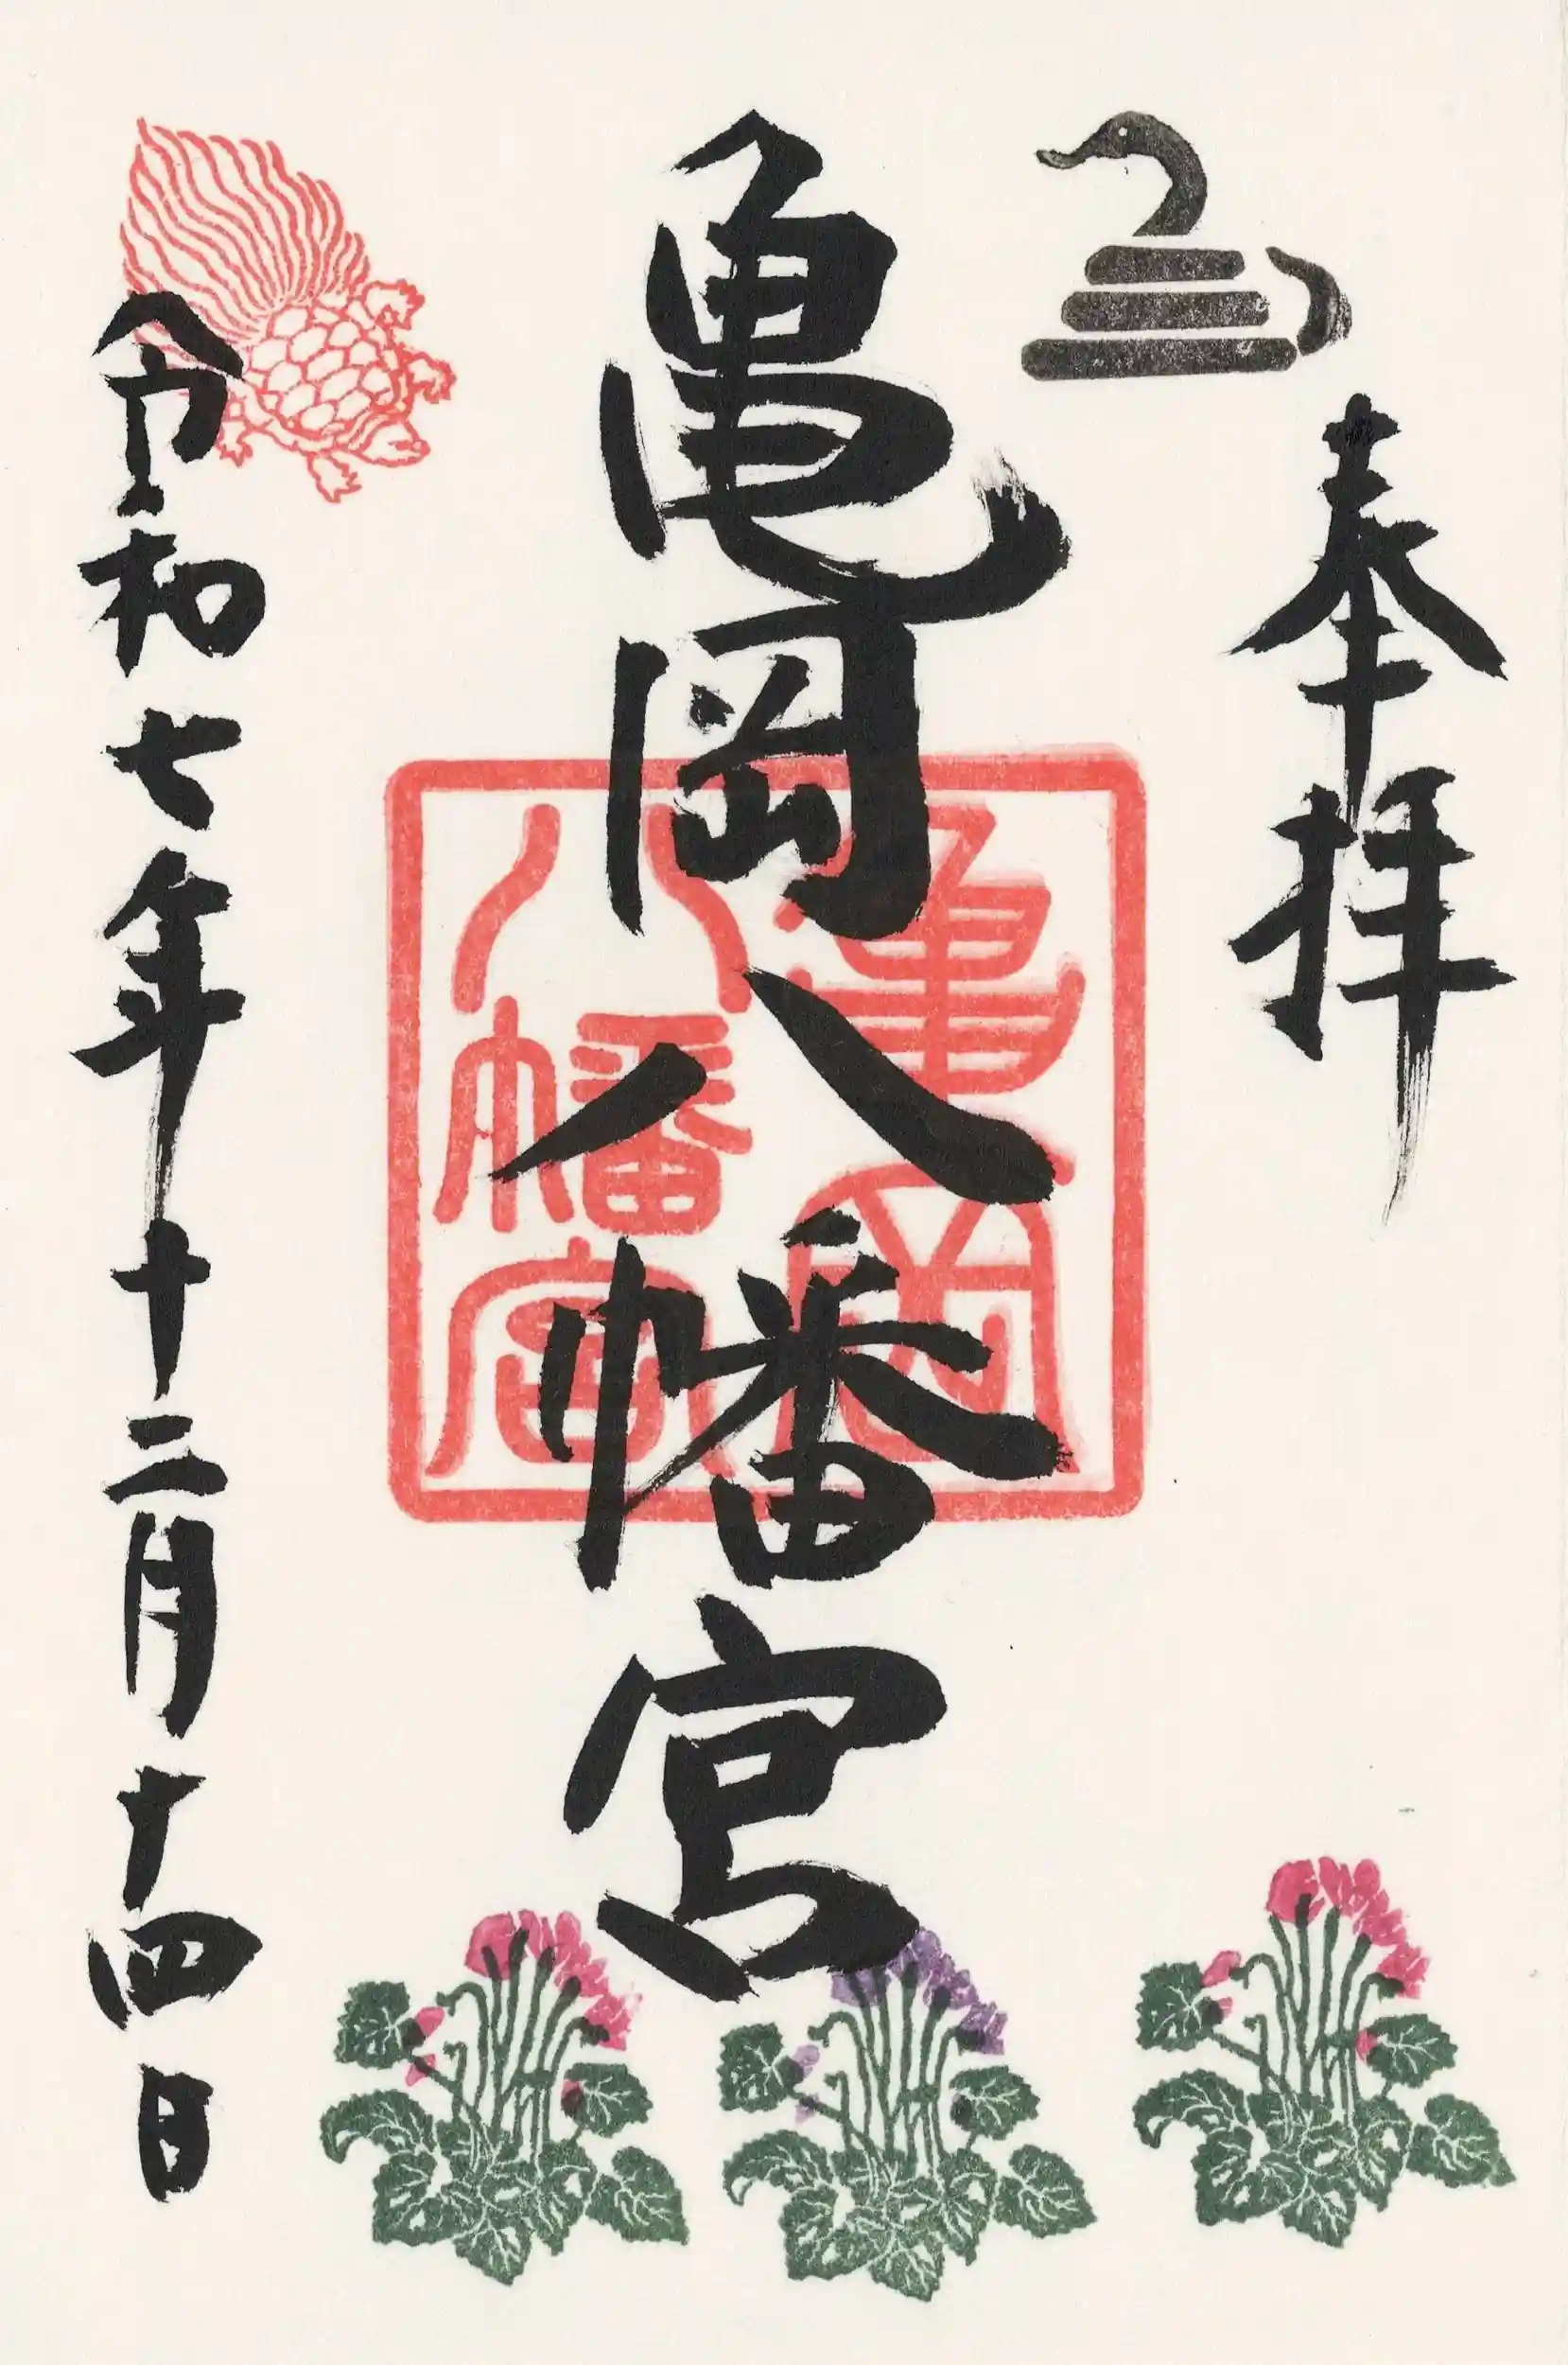 奉拝
亀岡八幡宮
亀岡
八幡宮
令和七年十二月十四日